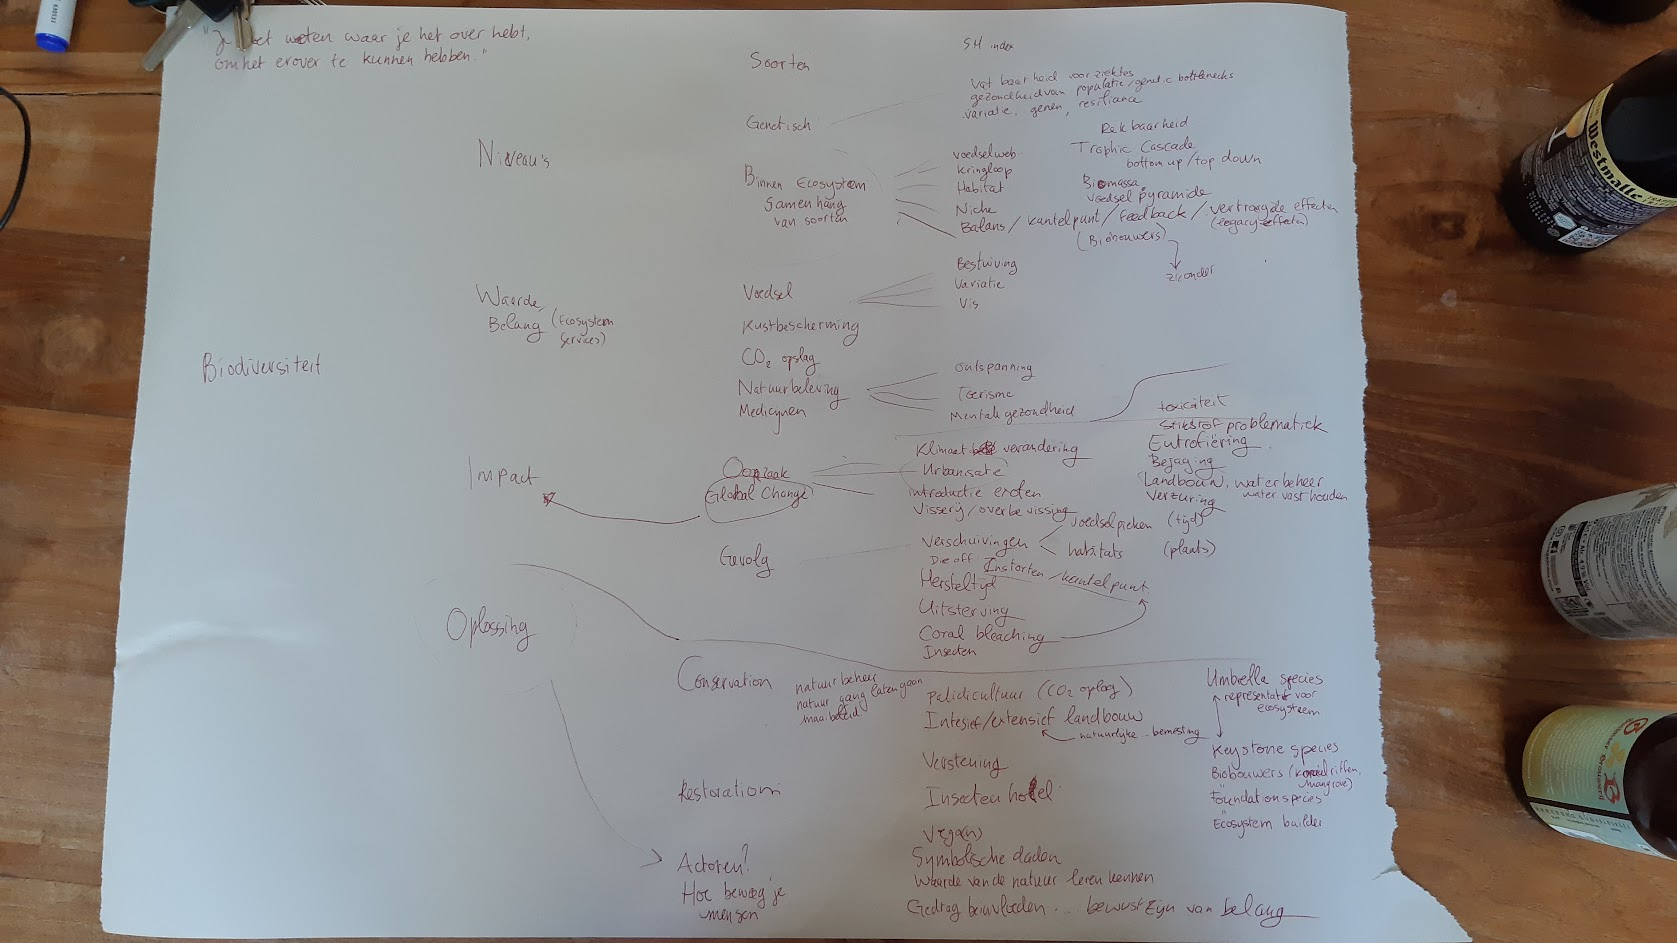 "Je moet weten waar je het over hebt,
om het erover te kunnen hebben."
Biodiversiteit
Niveau's
Soorten
SH index
Genetisch
Vatbaarheid voor ziektes
gezondheid van populatie/genetic bottlenecks
variatie, genen, resiliance
Rekbaarheid
Binnen Ecosysteem
Samenhang
van soorten
voedselweb
kringloop
Habitat
Niche
Balans / kantelpunt / feedback / vertraagde effecten
(legacy effecten)
Trophic Cascade
bottom up/top down
Biomassa
voedsel pyramide
(Biobouwers)
Waarde,
Belang (Ecosystem
services)
Voedsel
Bestuiving
Variatie
Vis
Kustbescherming
CO2 opslag
Natuurbeleving
ontspanning
Toerisme
Mentale gezondheid
Medicijnen
Impact
Oorzaak
Global Change
Klimaat verandering
Urbanisatie
introductie exoten
Visserij/overbevissing
toxiciteit
Stikstof problematiek
Eutrofiëring
Bejaging
Landbouw, waterbeheer
water vasthouden
Verzuring
Gevolg
Verschuivingen
voedselpieken (tijd)
habitats (plaats)
Die off Instorten/kantelpunt
Hersteltijd
Uitsterving
Coral bleaching
Insecten
Oplossing
Conservation
natuurbeheer
natuur gang laten gaan
maaibeleid
palidicultuur (CO2 opslag)
Intesief/extensief landbouw
natuurlijke bemesting
Verstening
Restoration
Insecten hotel
Umbrella species
representatief voor
ecosysteem
Keystone species
Biobouwers (koraalriffen,
mangrove)
"
Foundation species
"
Ecosystem builder
Actoren?
Hoe beweeg je
mensen
Vegan
Symbolische daden
Waarde van de natuur leren kennen
Gedrag beinvloeden ... bewustzijn van belang
Westmalle